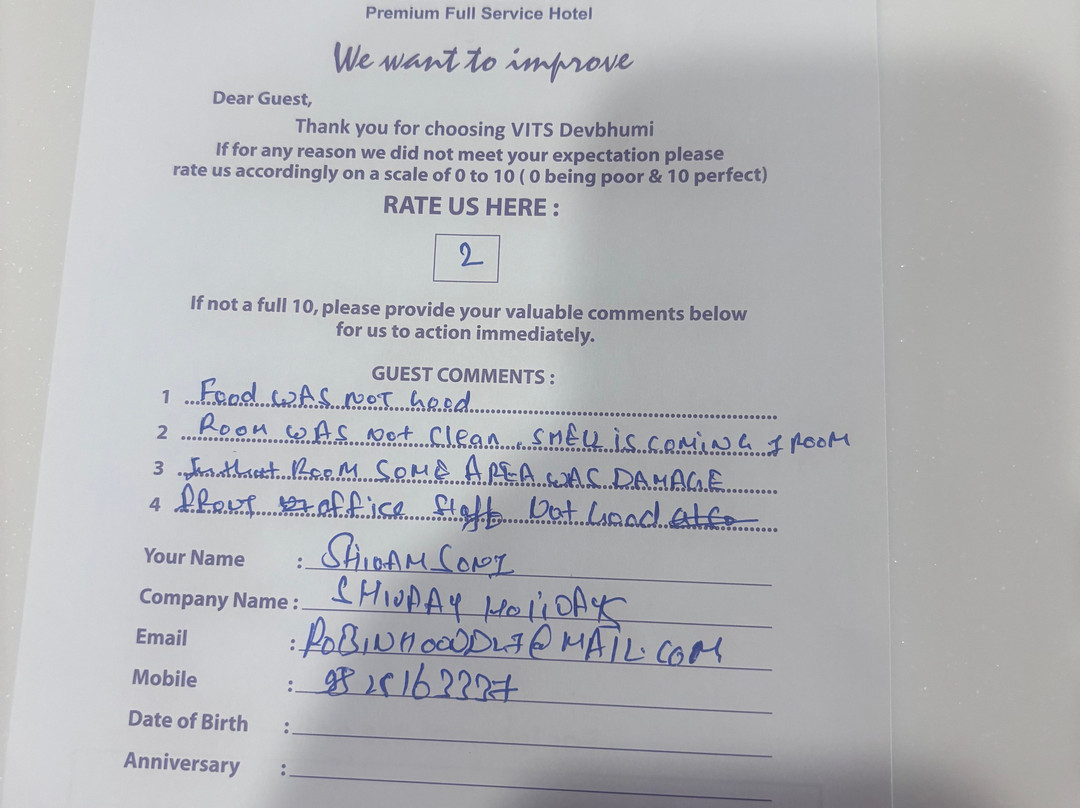 Premium Full Service Hotel
We want to improve
Dear Guest,
Thank you for choosing VITS Devbhumi
If for any reason we did not meet your expectation please
rate us accordingly on a scale of 0 to 10 ( 0 being poor & 10 perfect)
RATE US HERE :
2
If not a full 10, please provide your valuable comments below
for us to action immediately.
GUEST COMMENTS :
1 Food WAS NOT Good
2 Room WAS Not Clean. SMELL is COMING ROOM
3 In that ROOM SOME AREA WAS DAMAGE
4 FRONT office Staff Not Good
Your Name : SHIVAM SONI
Company Name : SHIVAAY HOLIDAYS
Email : @MAIL.COM
Mobile :
Date of Birth :
Anniversary :